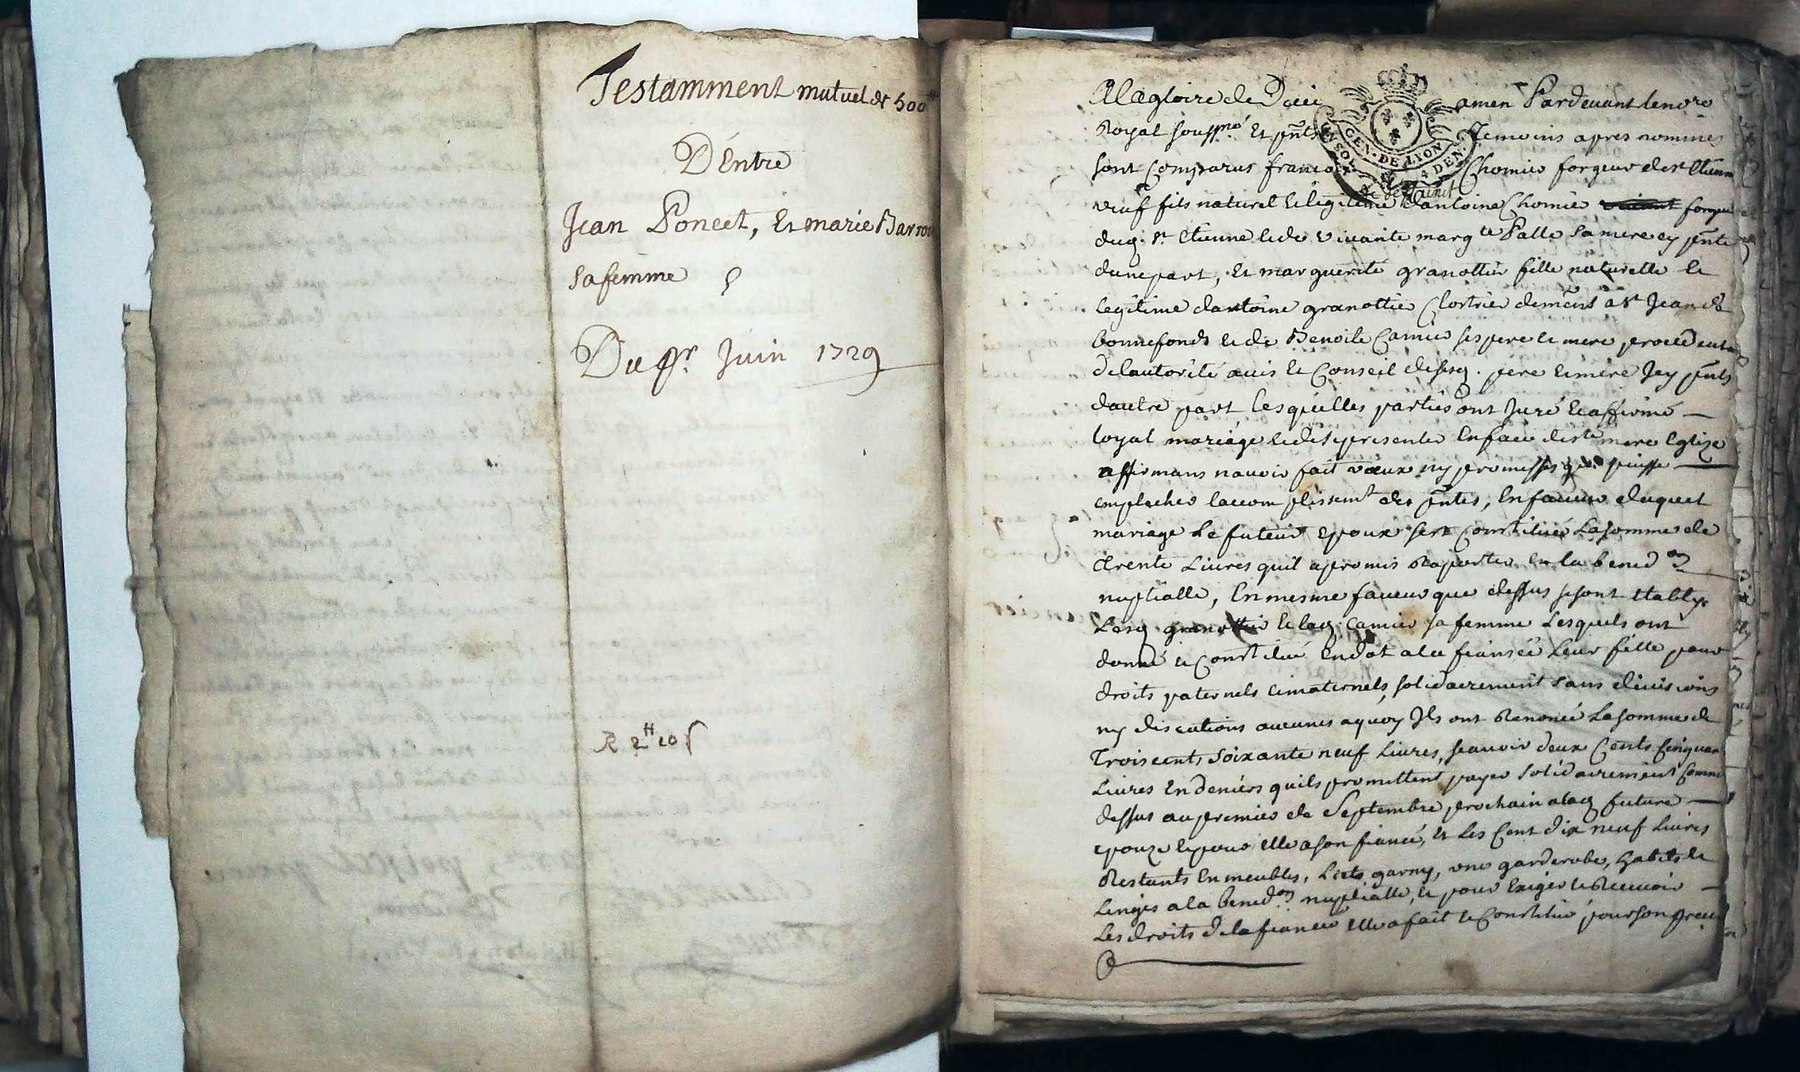 Testamment mutuel de 500ᵗᵗ
D'Entre
Jean Poncet, Et marie Barrou
sa femme
Du pr. Juin 1729
R 2ᵗᵗ 10 s
A la gloire de Dieu amen Pardevant le no.re
Royal souss.né Et p̃nts Temoins apres nommes
sont Comparus francois Chomier forgeur de s.t Etienne
GEN. DE LYON
veuf fils naturel Et legitime d'antoine Chomier forgeur
dud. s.t Etienne Et de vivante marg.te Palle sa mere cy p̃nte
dune part, Et marguerite granottier fille naturelle Et
legitime d'antoine granottier Clostrier demeur.t a S.t Jean de
bonnefonds Et de Benoite Camier ses pere Et mere procedante
de lautorité avis Et Conseil de sesd. pere Et mere Icy p̃nts
dautre part Lesquelles parties ont Juré Et affirmé
loyal mariage Et de se presenter En face de s.te mere Eglize
affirmans n'avoir fait vœux ny promesses qui puisse
empescher laccomplissem.t des p̃ntes, En faveur duquel
mariage Le futeur Epoux sest Constitué La somme de
trente Livres quil a promis Raporter En la bened.on
nuptialle, En mesme faveur que dessus se sont Etablys
Led. granottier Et lad. Camier sa femme Lesquels ont
donné Et Constitué En dot a la fiansée Leur fille pour
droits paternels Et maternels, solidairement sans divisions
ny discutions aucunes a quoy Ils ont Renoncé La somme de
Trois cents soixante neuf Livres, scavoir deux Cents Cinquante
Livres En deniers quils promettent payer solidairement Comme
dessus au premier de Septembre prochain a lad. future
epouze Et pour Elle a son fiancé, Et Les Cent dix neuf Livres
Restants En meubles, Licts garny, une garderobe, habits Et
Linges a la bened.on nuptialle, Et pour Exiger Et Recevoir
Les droits de la fiancée Elle a fait Et Constitué pour son procu